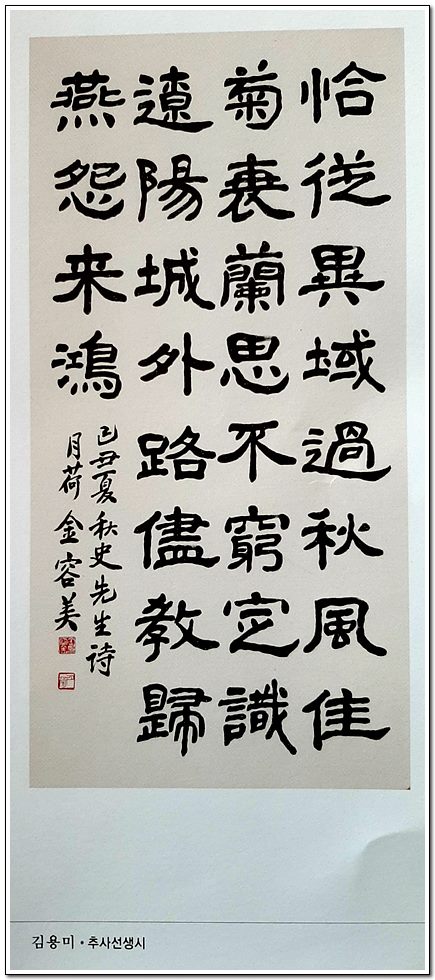 恰従異域過秋風佳
菊衰蘭思不窮定識
遼陽城外路儘教歸
燕怨来鴻
己丑夏 秋史先生詩
月荷 金容美
김용미 · 추사선생시